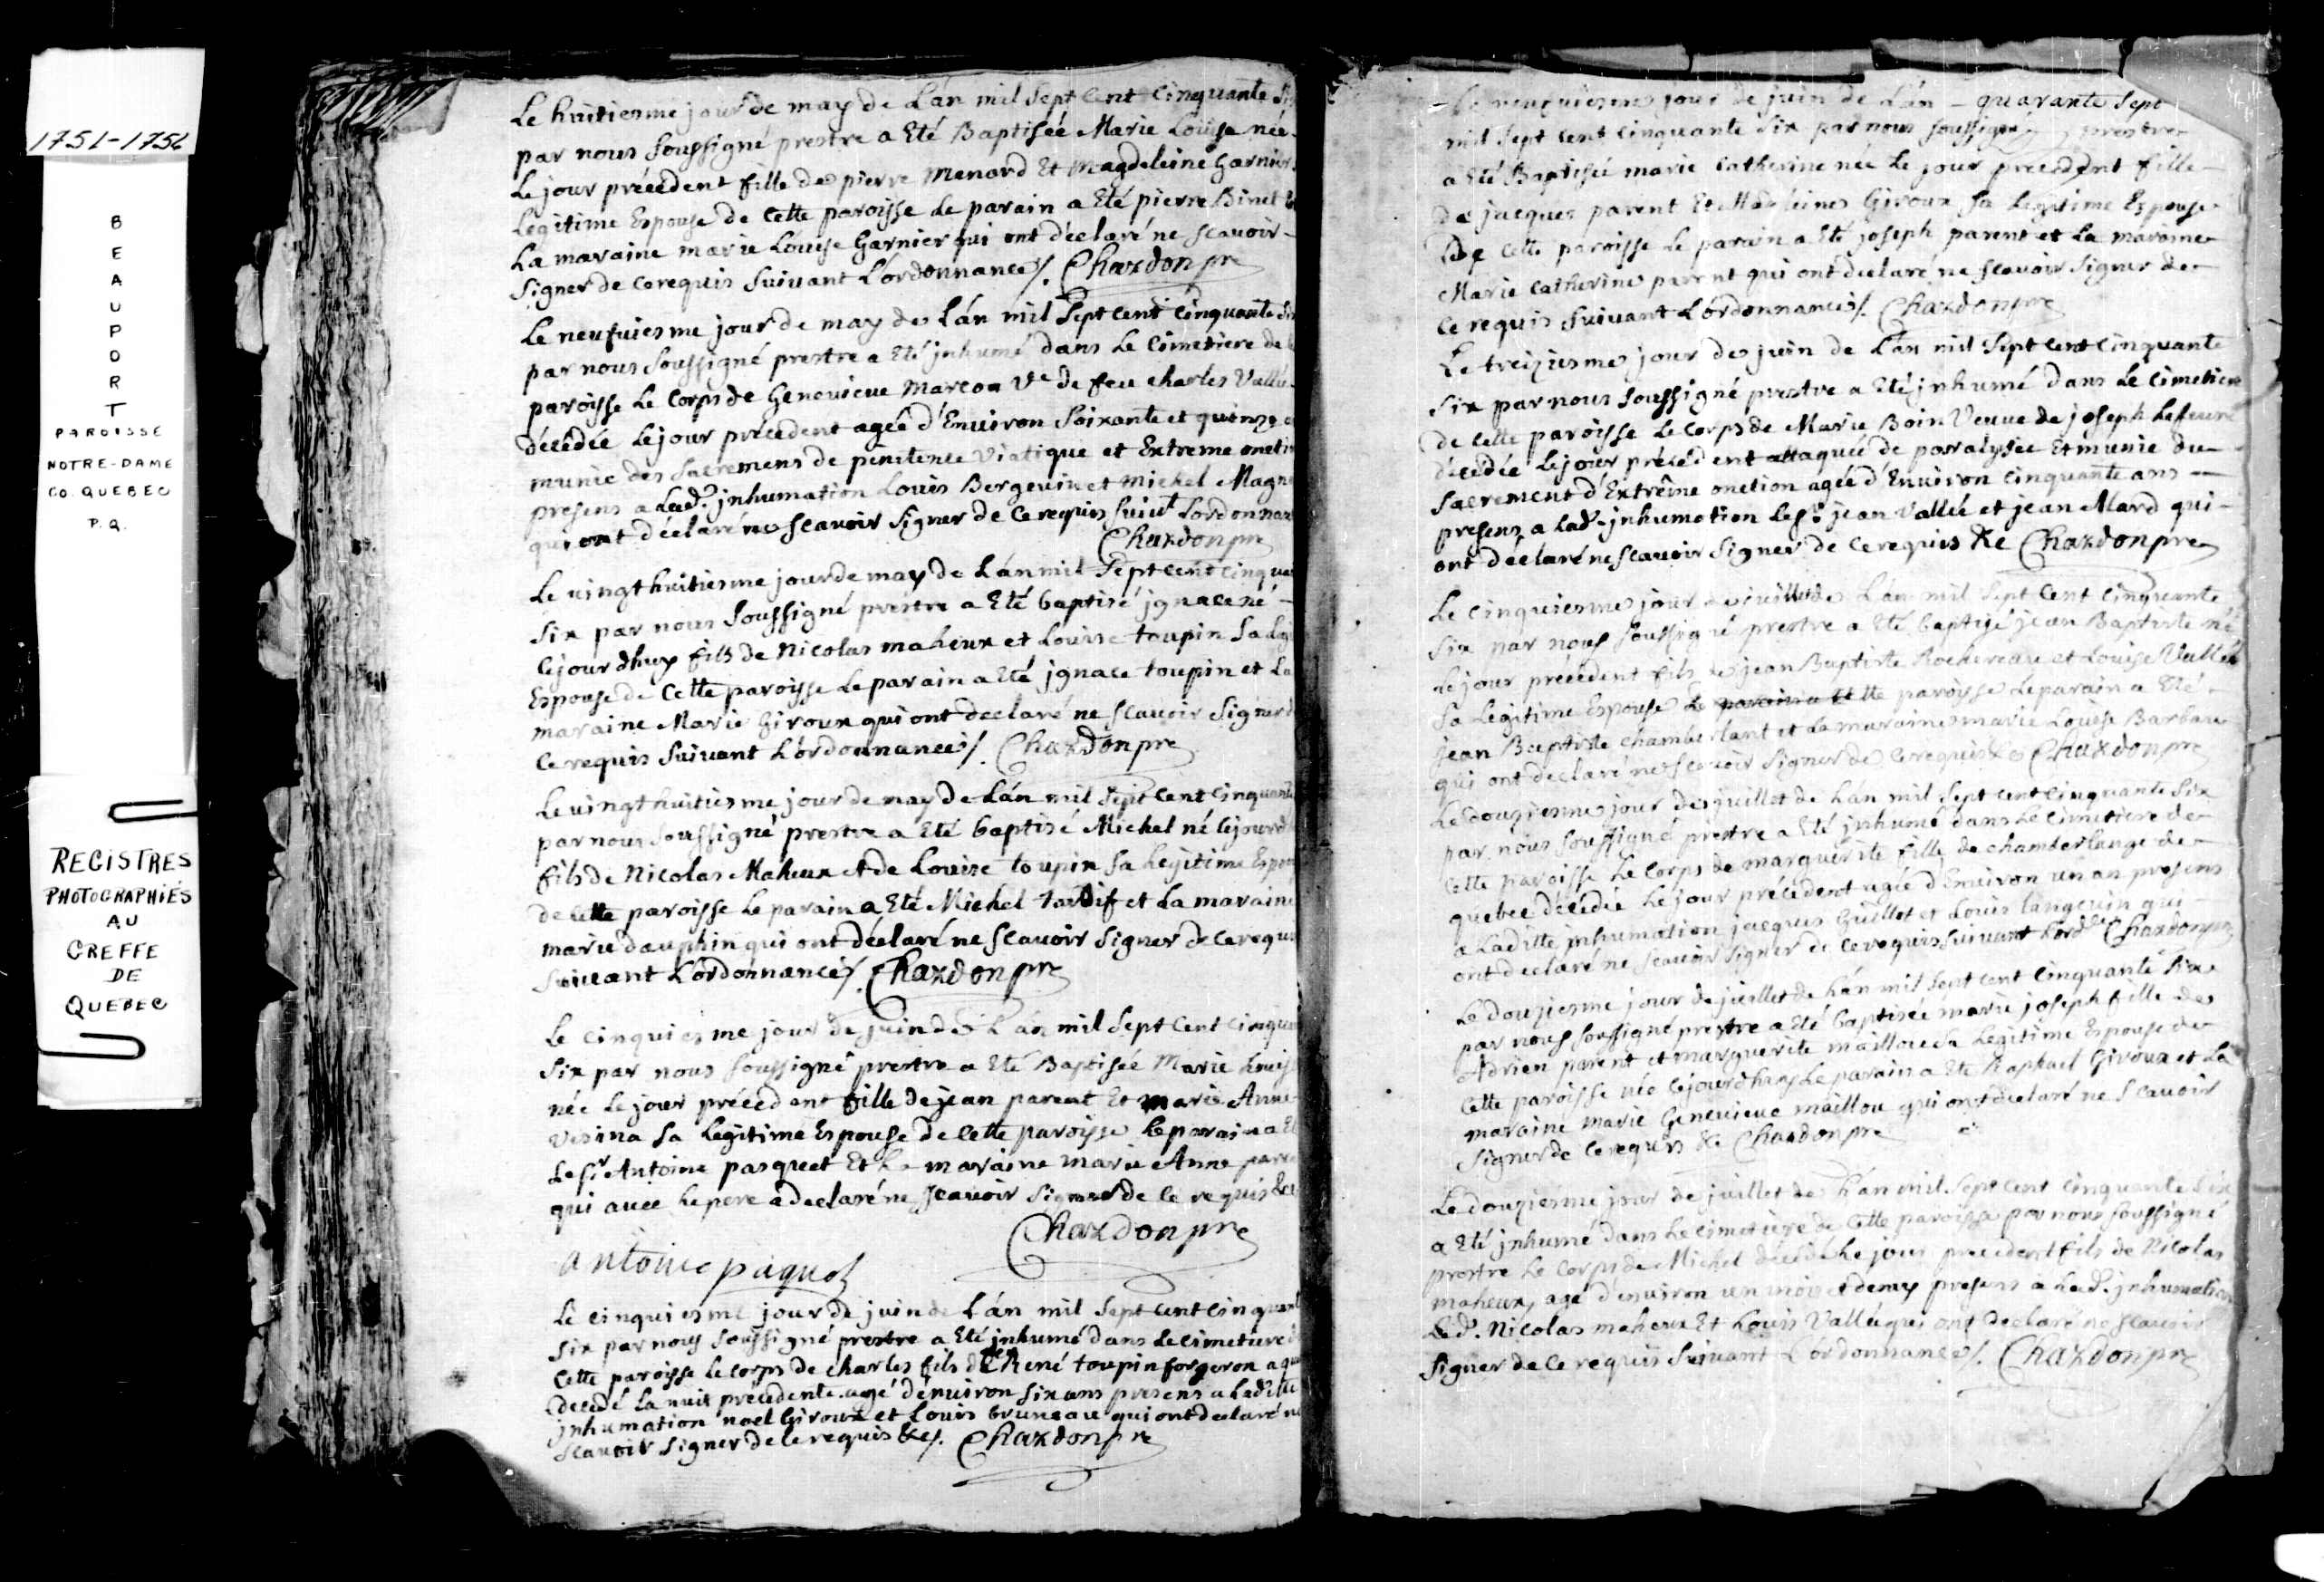 1751-1756
BEAUPORT
PAROISSE
NOTRE-DAME
CO. QUEBEC
P.Q.
REGISTRES
PHOTOGRAPHIÉS
AU
GREFFE
DE
QUEBEC
Le huitiesme jour de may de Lán mil Sept cent Cinquante Six
par nous Soussigné prestre a Eté Baptisée Marie Loüise née
Le jour précedent fille de pierre Menard Et Magdeleine Garnier
Legitime Espouse de Cette paroisse Le parain a Eté pierre Binet Et
La maraine marie Loüise Garnier qui ont déclaré ne scavoir
Signer de ce requis Suivant L'ordonnance/. Chardon pre
Le neufuiesme jour de may de Lán mil Sept cent cinquante Six
par nous Soussigné prestre a Eté jnhumé dans Le Cimetiere de
paroisse Le Corps de Geneuieue Marcou Ve de feu charles Vallée
décédée Le jour précedent agée d'Enuiron Soixante et quinze
munie des Sacremens de penitence Viatique et Extreme onction
presens a Lad. jnhumation Louis Bergeuin et Michel Magn
qui ont déclaré ne scavoir Signer de ce requis Suivt Lordonnan
Chardon pre
Le vingt huitiesme jour de may de Lán mil Sept cent cinquan
Six par nous Soussigné prestre a Eté baptisé jgnace né
cejourdhuy fils de Nicolas maheux et Louise toupin Sa Legi
Espouse de Cette paroisse Le parain a Eté jgnace toupin et La
maraine Marie Giroux qui ont declaré ne scavoir Signer d
ce requis Suivant L'ordonnance/. Chardon pre
Le vingt huitiesme jour de may de Lán mil Sept cent cinquante
par nous Soussigné prestre a Eté baptisé Michel né cejourd
fils de Nicolas Maheux et de Louise toupin Sa Legitime Espou
de Cette paroisse Le parain a Eté Michel tardif et La maraine
marie dauphin qui ont déclaré ne scavoir Signer de ce requ
Suivant L'ordonnance/. Chardon pre
Le cinquiesme jour de juin de Lán mil Sept Cent cinquan
Six par nous Soussigné prestre a Eté Baptisée Marie Louise
née Le jour précédent fille de jean parent Et marie Anne
Vesina Sa Legitime Espouse de Cette paroisse Le parain a Et
Le Sr Antoine pasquet Et La maraine marie Anne paren
qui auec Le pere a declaré ne scavoir Signer de ce requis &c
Chardon pre
antoine paquet
Le cinquiesme jour de juin de Lán mil Sept cent cinquant
Six par nous Soussigné prestre a Eté jnhumé dans Le cimetiere d
Cette paroisse Le corps de charles fils de René toupin forgeron a qu
decedé La nuit précedente agé d'enuiron Six ans presens a Ladite
jnhumation noel Giroux et Louis bruneau qui ont declaré ne
scavoir Signer de ce requis &c/. Chardon pre
Le neufuiesme jour de juin de Lán - quarante Sept
mil Sept cent cinquante Six par nous Soussigné prestre
a Eté Baptisée marie Catherine née Le jour precedent fille
de jacques parent Et Madeleine Giroux Sa Legitime Espouse
De Cette paroisse Le parain a Eté joseph parent et La maraine
Marie Catherine parent qui ont declaré ne Scavoir Signer de
ce requis Suivant Lordonnance/. Chardon pre
Le treiziesme jour de juin de Lán mil Sept cent cinquante
Six par nous Soussigné prestre a Eté jnhumé dans Le Cimetiere
de Cette paroisse Le Corps de Marie Boin Veuue de joseph Lefeure
décédée Le jour précédent attaquée de paralysie Et munie du
Sacrement d'Extrême onction agée d'Enuiron Cinquante ans
presens a Lad. jnhumation Les Srs jean Vallée et jean Mard qui
ont déclaré ne scavoir Signer de ce requis &c Chardon pre
Le cinquiesme jour de juillet de Lán mil Sept Cent Cinquante
Six par nous Soussigné prestre a Eté baptisé jean Baptiste né
Le jour précédent fils de jean Baptiste Rochereau et Louise Vallée
Sa Legitime Espouse de Cette paroisse Le parain a Eté
jean Baptiste chamberlant et La maraine marie Loüise Barbau
qui ont declaré ne scavoir Signer de ce requis &c Chardon pre
Le douziesme jour de juillet de Lán mil Sept cent cinquante Six
par nous Soussigné prestre a Eté jnhumé dans Le Cimetiere de
Cette paroisse Le Corps de marguerite fille de chamberlange de
québec décédée Le jour précédent agée d'Enuiron un an presens
a Ladite jnhumation jacques Guillot et Louis langeuin qui
ont declaré ne scavoir Signer de ce requis Suivant Lordce Chardon pre
Le douziesme jour de juillet de Lán mil Sept cent cinquante Six
par nous Soussigné prestre a Eté baptisée marie joseph fille de
Adrien parent et marguerite maillou Sa Legitime Espouse de
Cette paroisse née cejourdhuy Le parain a Eté Raphael Giroux et La
maraine marie Geneuieue maillou qui ont declaré ne Scavoir
Signer de ce requis &c Chardon pre
Le douziesme jour de juillet de Lán mil Sept cent cinquante Six
a Eté jnhumé dans Le cimetiere de Cette paroisse par nous Soussigné
prestre Le Corps de Michel décédé Le jour precedent fils de Nicolas
maheux, agé d'enuiron un mois et demy presens a Lad. jnhumation
Led. Nicolas maheux Et Louis Vallée qui ont declaré ne scavoir
Signer de ce requis Suivant L'ordonnance/. Chardon pre